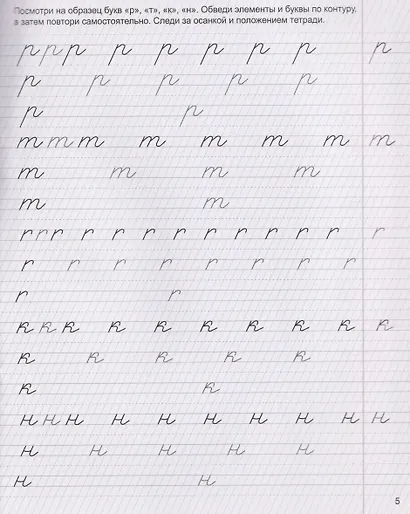 Посмотри на образец букв «р», «т», «к», «н». Обведи элементы и буквы по контуру,
а затем повтори самостоятельно. Следи за осанкой и положением тетради.
р р р р р р р р р
р р р р р
р р
т т т т т т т т
т т т т
т т
г г г г г г г г г г г г г
г г г г г г г г
г г
к к к к к к к к к к
к к к к к
к к
н н н н н н н н н н
н н н н н
н н
5